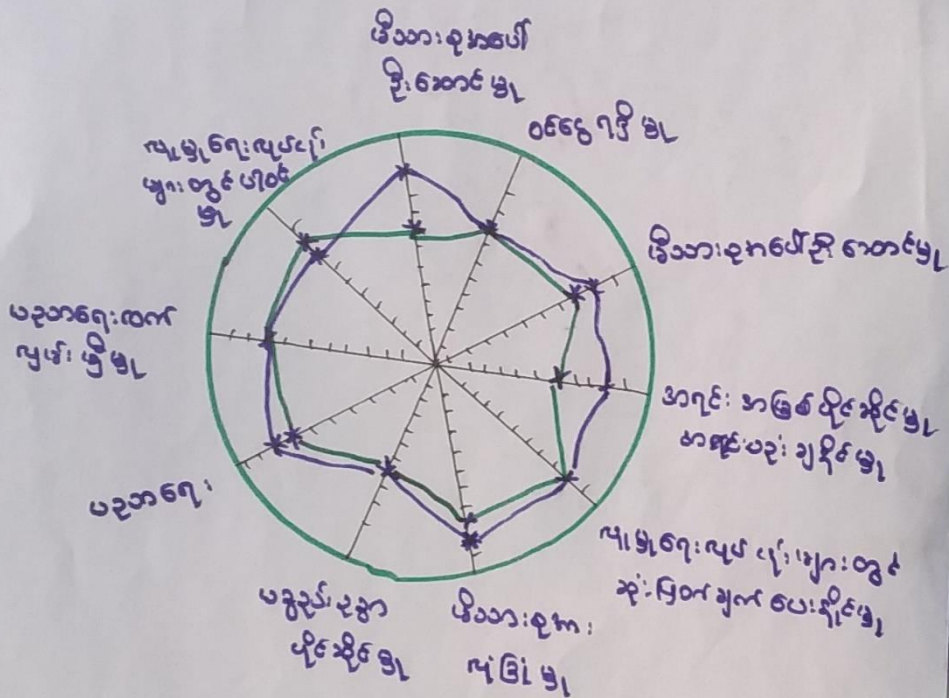 မိသားစုအပေါ်
ဦးဆောင်မှု
ဝင်ငွေရရှိမှု
မိသားစုအပေါ်ဦးဆောင်မှု
အရင်းအမြစ်ပိုင်ဆိုင်မှု
လူမှုရေးလုပ်ငန်းများတွင်
ဆုံးဖြတ်ချက်ပေးနိုင်မှု
မိသားစုအား
လုံခြုံမှု
ပိုင်ဆိုင်မှု
ပညာရေး
ပညာရေးလက်
လှမ်းမှီမှု
လူမှုရေးလုပ်ငန်း
များတွင်ပါဝင်
မှု